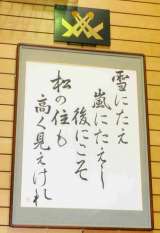 雪にたえ
嵐にたえし
後にこそ
松の位も
高く見えけれ